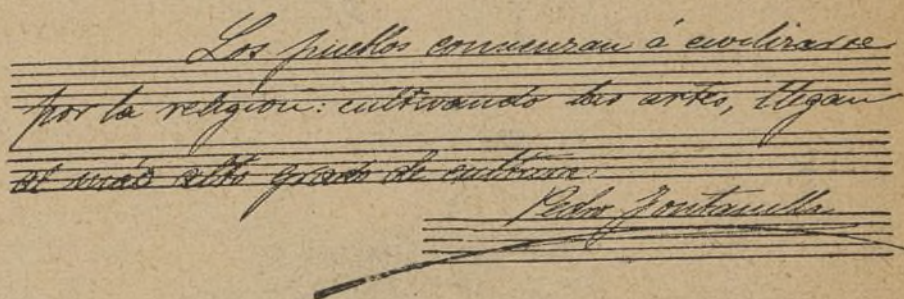 Los pueblos comienzan á civilizarse
por la religion: cultivando las artes, llegan
al más alto grado de cultura.
Pedro Fontanilla